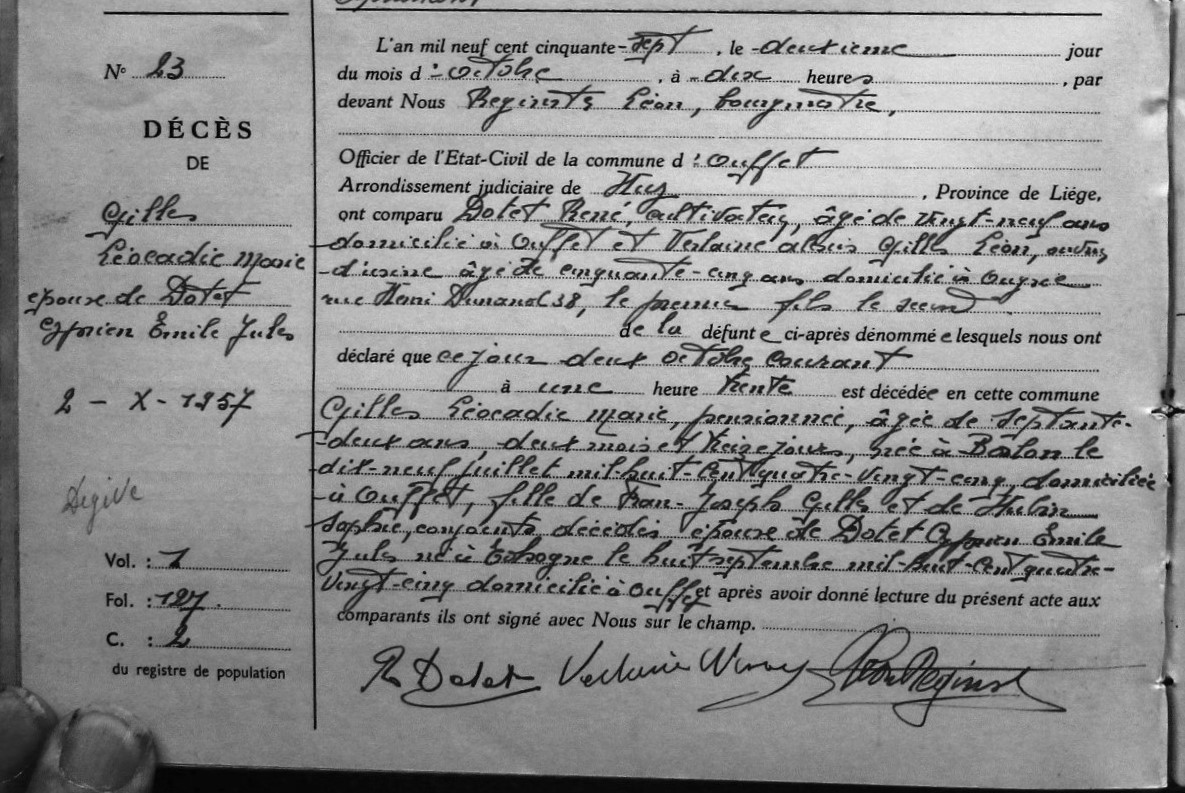 N° 23
DÉCÈS
DE
Gilles
Léocadie Marie
épouse de Dotet
Cyprien Émile Jules
2 - X - 1957
Vol. : 1
Fol. : 127.
C. : 2
du registre de population
L'an mil neuf cent cinquante-sept, le deuxième jour
du mois d'octobre, à dix heures, par
devant Nous Reginster Léon, bourgmestre,
Officier de l'Etat-Civil de la commune d'Ouffet
Arrondissement judiciaire de Huy, Province de Liége,
ont comparu Dotet René, cultivateur, âgé de vingt-neuf ans
domicilié à Ouffet et Verlaine Gilles Léon, ouvrier
d'usine âgé de cinquante-cinq ans domicilié à Ougrée
rue Henri Dunand 38, le premier fils le second
de la défunte ci-après dénommée lesquels nous ont
déclaré que ce jour deux octobre courant
à une heure trente est décédée en cette commune
Gilles Léocadie Marie, pensionnée, âgée de septante-
deux ans, deux mois et treize jours, née à le
dix-neuf juillet mil-huit-cent quatre-vingt-cinq, domiciliée
à Ouffet, fille de Joseph Gilles et de Hubin
Sophie, conjoints, décédés, épouse de Dotet Cyprien Émile
Jules né à le huit septembre mil-huit-cent quatre-
vingt-cinq domicilié à Ouffet et après avoir donné lecture du présent acte aux
comparants ils ont signé avec Nous sur le champ.
R Dotet Verlaine